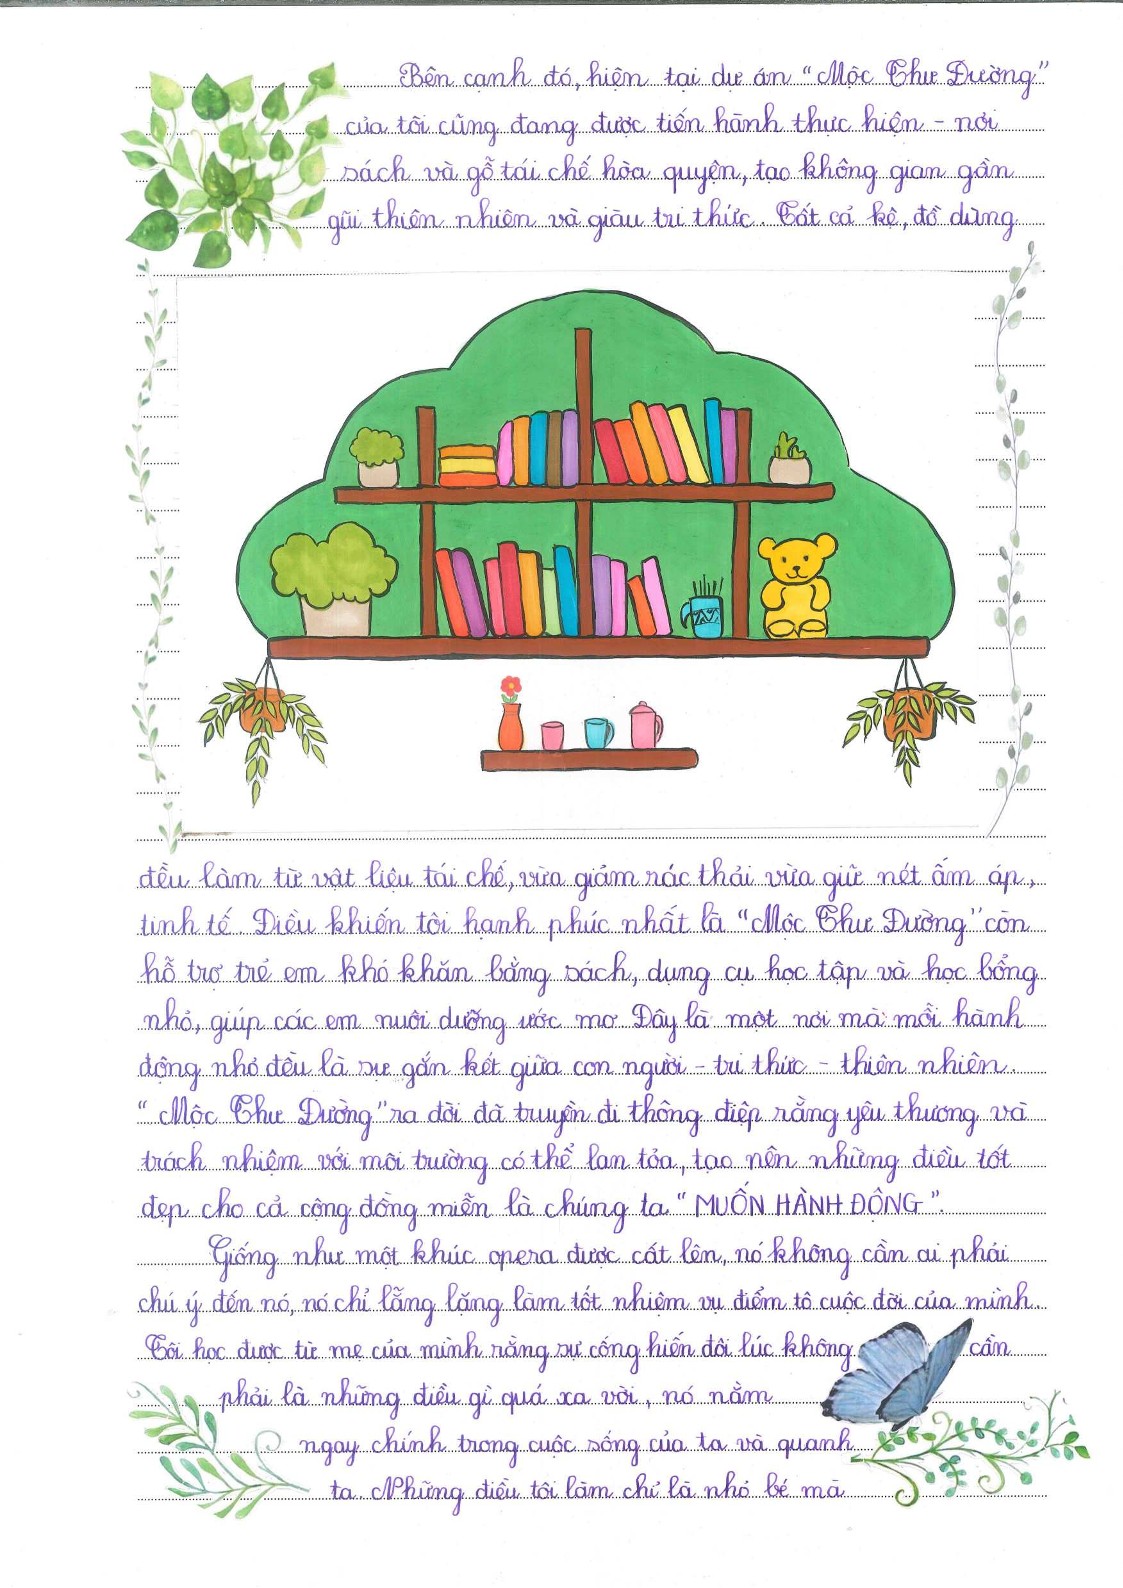 Bên cạnh đó, hiện tại dự án "Mộc Thư Đường"
của tôi cũng đang được tiến hành thực hiện - nơi
sách và gỗ tái chế hòa quyện, tạo không gian gần
gũi thiên nhiên và giàu tri thức. Tất cả kệ, đồ dùng
đều làm từ vật liệu tái chế, vừa giảm rác thải vừa giữ nét ấm áp,
tinh tế. Điều khiến tôi hạnh phúc nhất là "Mộc Thư Đường" còn
hỗ trợ trẻ em khó khăn bằng sách, dụng cụ học tập và học bổng
nhỏ, giúp các em nuôi dưỡng ước mơ. Đây là một nơi mà mỗi hành
động nhỏ đều là sự gắn kết giữa con người - tri thức - thiên nhiên.
"Mộc Thư Đường" ra đời đã truyền đi thông điệp rằng yêu thương và
trách nhiệm với môi trường có thể lan tỏa, tạo nên những điều tốt
đẹp cho cả cộng đồng miễn là chúng ta "MUỐN HÀNH ĐỘNG".
Giống như một khúc opera được cất lên, nó không cần ai phải
chú ý đến nó, nó chỉ lẳng lặng làm tốt nhiệm vụ điểm tô cuộc đời của mình.
Tôi học được từ mẹ của mình rằng sự cống hiến đôi lúc không cần
phải là những điều gì quá xa vời, nó nằm
ngay chính trong cuộc sống của ta và quanh
ta. Những điều tôi làm chỉ là nhỏ bé mà